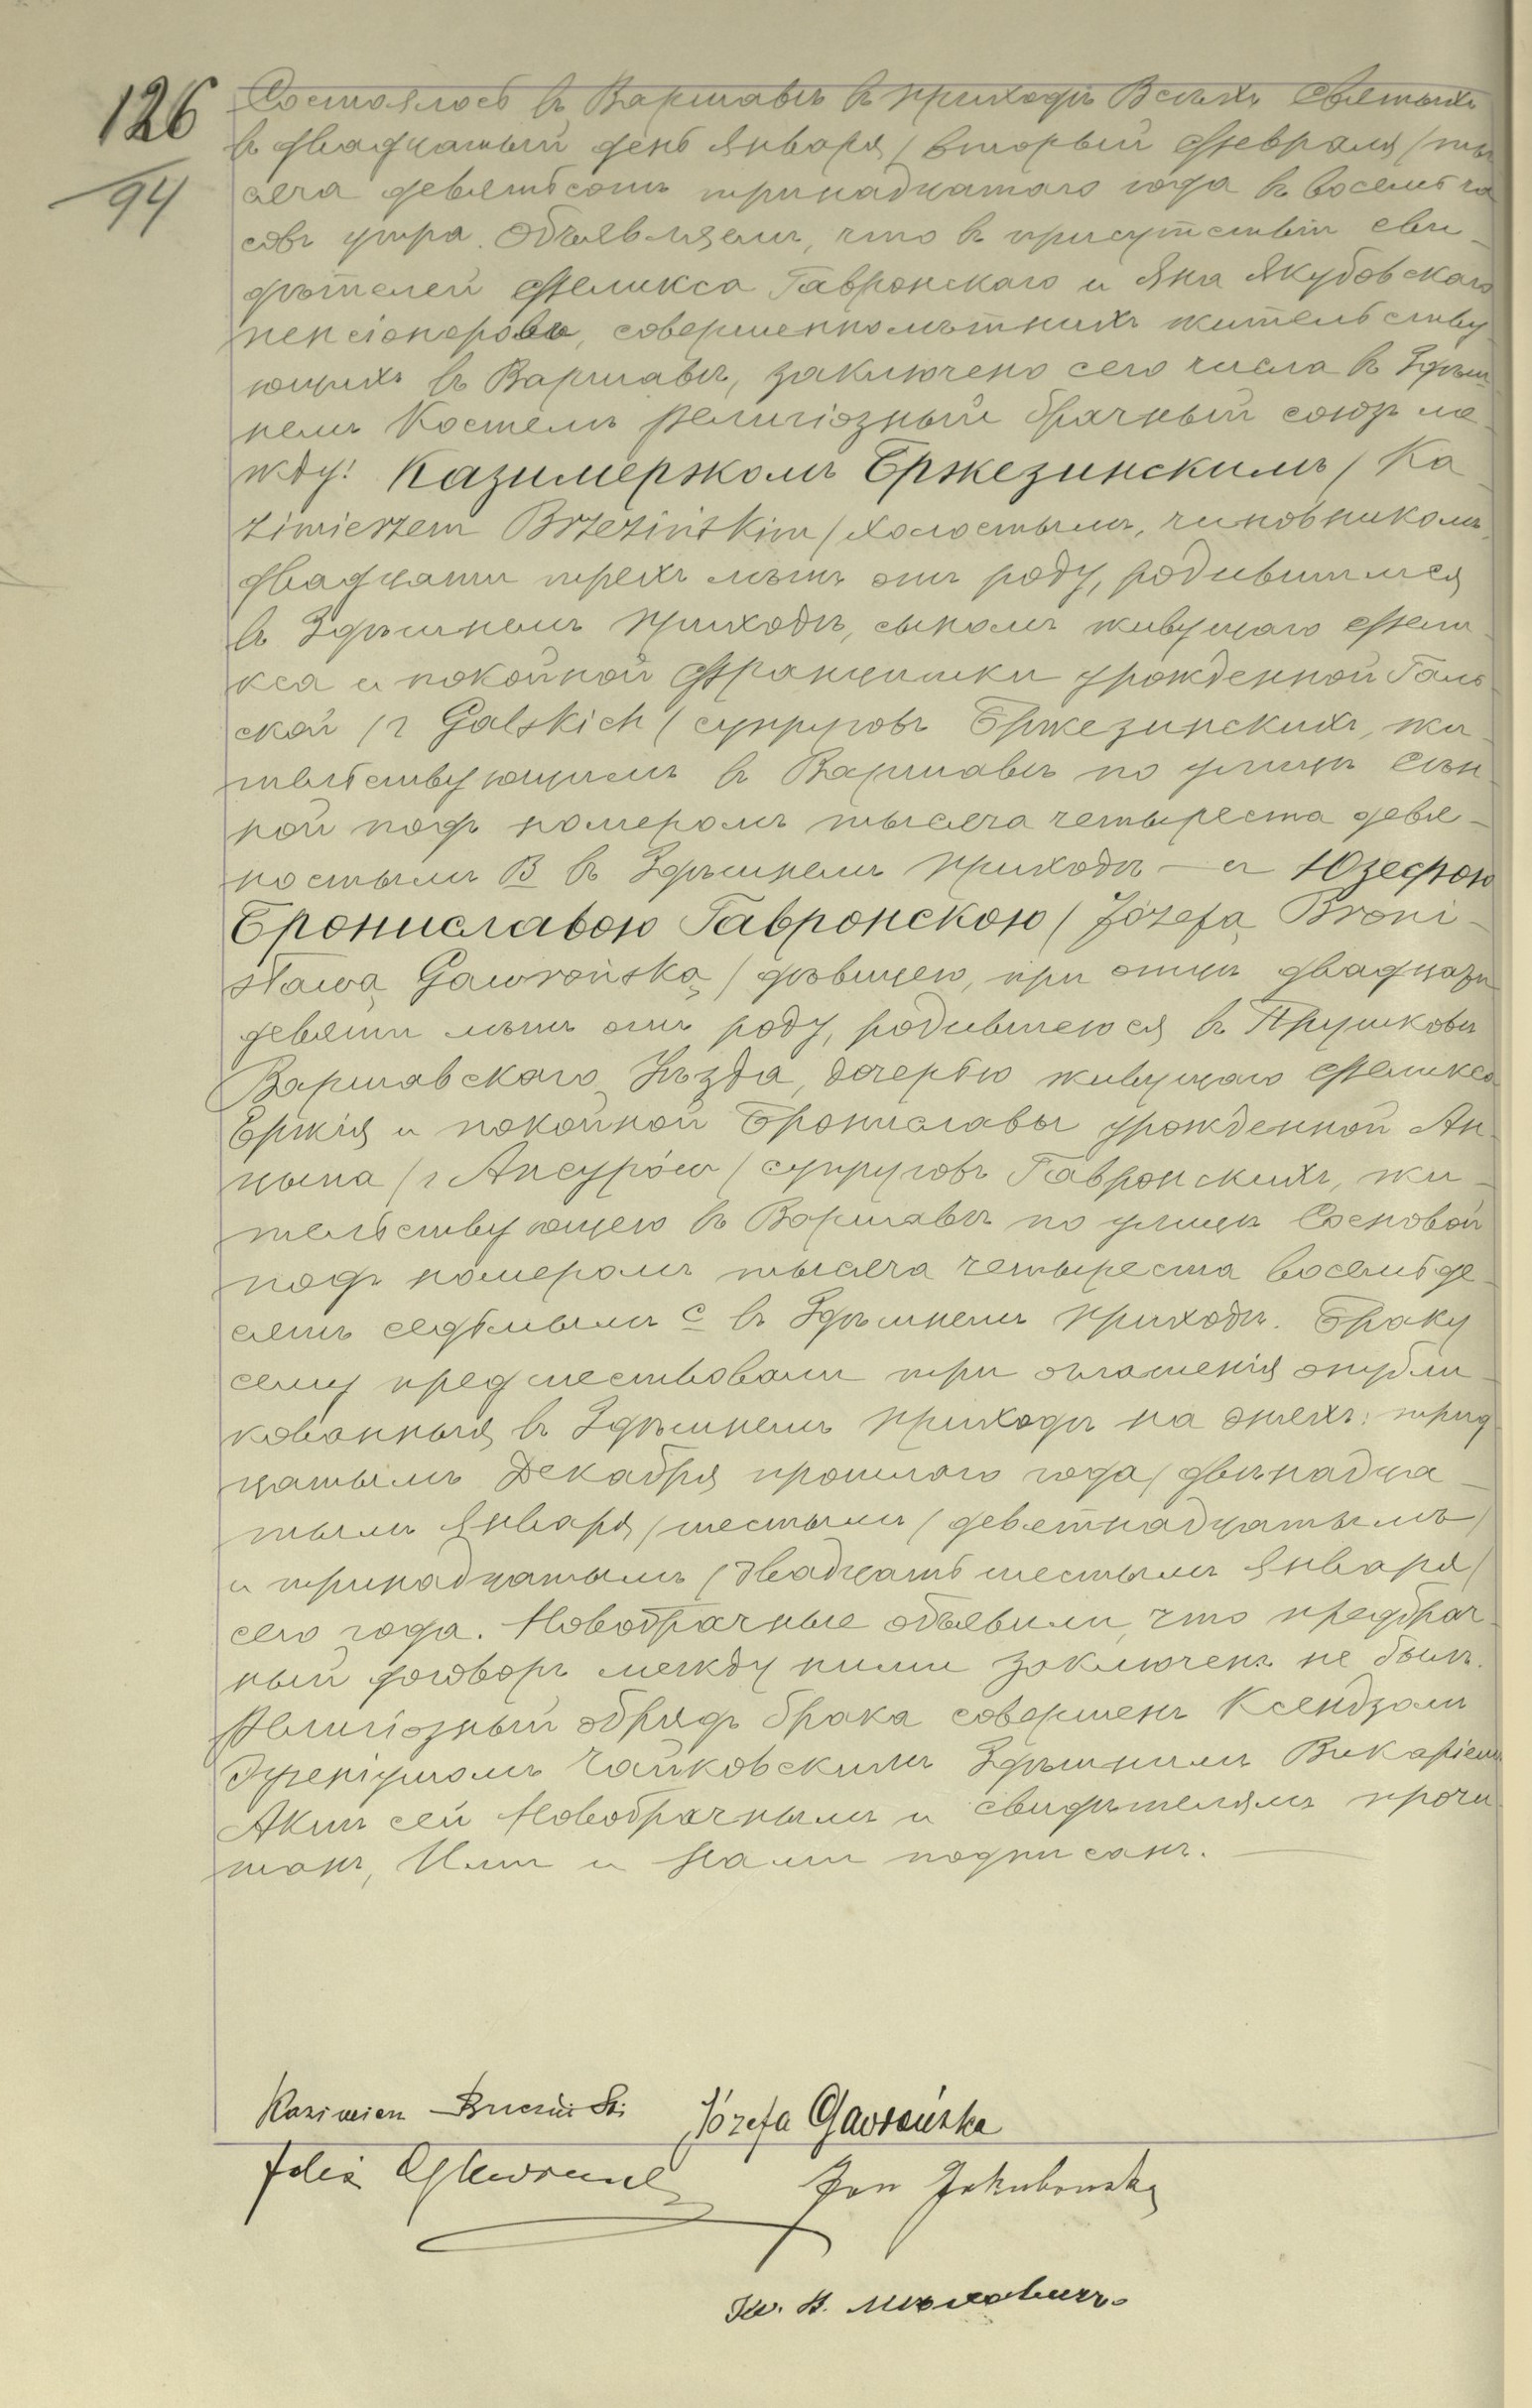 126
94
Состоялось въ Варшавѣ въ приходѣ Всѣхъ Святыхъ
въ двадцатый день Января / второй Февраля / ты
сяча девятьсотъ тринадцатаго года въ восемь ча
совъ утра. Объявляемъ, что въ присутствіи сви-
дѣтелей Феликса Гавронскаго и Яна Якубовскаго
пенсіонеровъ, совершеннолѣтнихъ жительству
ющихъ въ Варшавѣ, заключено сего числа въ Здѣш-
немъ Костелѣ религіозный брачный союзъ ме-
жду: Казимержомъ Бржезинскимъ / Ka-
zimierzem Brzezińskim / холостымъ, чиновникомъ,
двадцати трехъ лѣтъ отъ роду, родившимся
въ Здѣшнемъ приходѣ, сыномъ живущаго Фели-
кса и покойной Францишки урожденной Галь-
ской / z Galskich / супруговъ Бржезинскихъ, жи-
тельствующимъ въ Варшавѣ по улицѣ Сѣн-
ной подъ номеромъ тысяча четыреста девя-
ностымъ В въ Здѣшнемъ приходѣ — и Юзефою
Брониславою Гавронскою / Józefą Broni-
sławą Gawrońską / дѣвицею, при отцѣ двадцати
девяти лѣтъ отъ роду, родившеюся въ Прушковѣ
Варшавскаго Уѣзда, дочерью живущаго Феликса
Ержія и покойной Брониславы урожденной Ан-
цыпа / z Ancypów / супруговъ Гавронскихъ, жи-
тельствующею въ Варшавѣ по улицѣ Сосновой
подъ номеромъ тысяча четыреста восемьде-
сятъ седьмымъ с въ Здѣшнемъ приходѣ. Браку
сему предшествовали три оглашенія опубли-
кованныя въ Здѣшнемъ приходѣ на дняхъ: трид
цатымъ Декабря прошлаго года / двѣнадца-
тымъ Января / шестымъ / девятнадцатымъ /
и тринадцатымъ / двадцать шестымъ Января /
сего года. Новобрачные объявили, что предбрач-
ный договоръ между ними заключенъ не былъ.
Религіозный обрядъ брака совершенъ Ксендзомъ
Чайковскимъ Здѣшнимъ Викаріемъ
Актъ сей Новобрачнымъ и свидѣтелямъ прочи
танъ, Ими и Нами подписанъ.
Kazimierz Brzeziński Józefa Gawrońska
Feliks Gawroński Jan Jakubowski